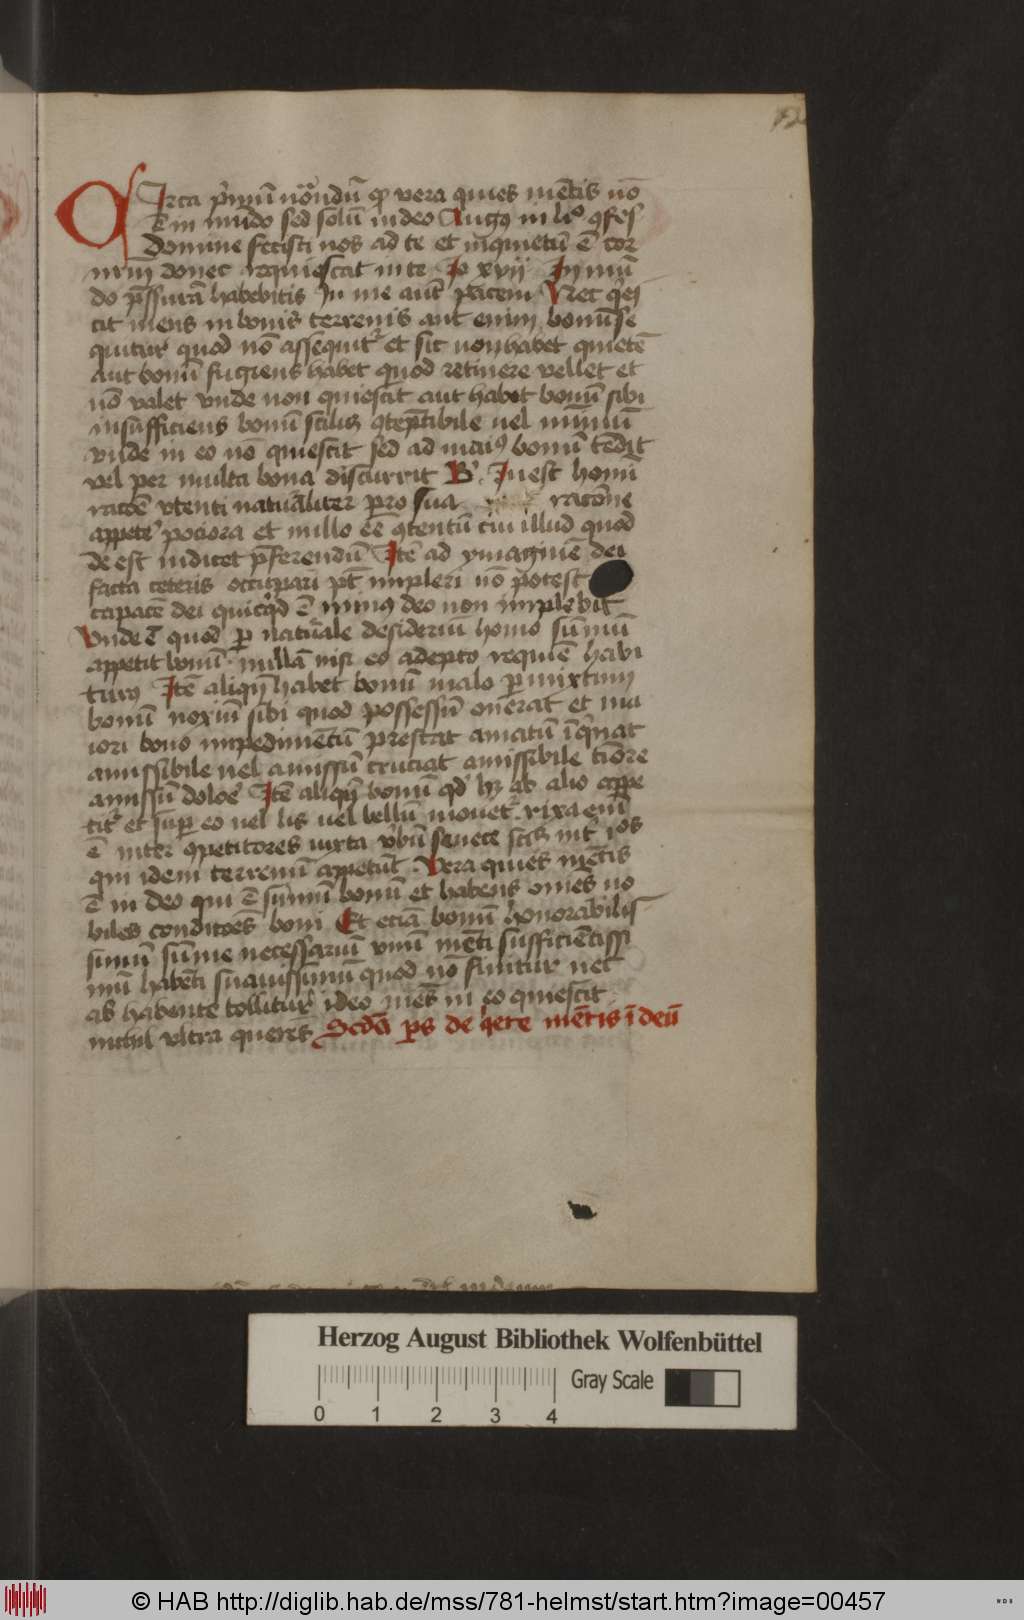 Irca p̄imū notandū q̄ vera quies mētis nō
ē in mūdo sed solū in deo Augus in li° ꝯfes
Domine fecisti nos ad te et inquietū ē cor
nr̄m donec requiescat in te Jo xvij In mū
do p̄ssurā habebitis In me aut pacem Nec
cit mens in bonis terrenis aut enim bonū se
quitur quod nō assequit et sic non habet quietē
aut bonū fugiens habet quod retinere vellet et
nō valet vnde non quiescit aut habet bonū sibi
insufficiens bonū scilicet ꝯtēptibile uel minimū
vnde in eo nō quiescit sed ad maius bonū tēdit
vel per multa bona discurrit B Inest homī
racōe vtenti naturaliter pro sua racōne
appetē pociora et nullo eē ꝯtentū cui illud quod
de est iudicet p̄ferendū Itē ad ymaginē dei
facta ceteris occupari pt̄ impleri nō potest
capacē dei quicqd ē minus deo non implebit
Vnde ē quod per naturale desideriū homo sūmū
appetit bonū nullā nisi eo adepto requiē habi
turus Itē aliqn̄ habet bonū malo permixtum
bonū noxiū sibi quod possessū onerat et ma
iori bono impedimētū prestat amatū īq̄nat
amissibile uel amissū cruciat amissibile timore
amissū dolore Itē aliqn̄ bonū qd̄ hȝ ab alio appe
tit̄ et super eo uel lis uel bellū mouet̄ rixa enī
ē inter ꝯpetitores iuxta v̄bū senece int̄ eos
qui idem terrenū appetūt Vera quies mētis
ē in deo qui ē sūmū bonū et habens omēs no
biles condicōes boni Et etiā bonū honorabilis
simū sūme necessariū vnū mēti sufficiētissi
mū habēti suauissimū quod nō finitur nec
ab habente tollitur ideo mēs in eo quiescit
nichil vltra querēs Scd̄a ps de q̄ete mētis ī deū
Herzog August Bibliothek Wolfenbüttel
Gray Scale
0 1 2 3 4
© HAB http://diglib.hab.de/mss/781-helmst/start.htm?image=00457